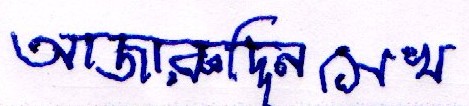 আজারুদ্দিন সেখ